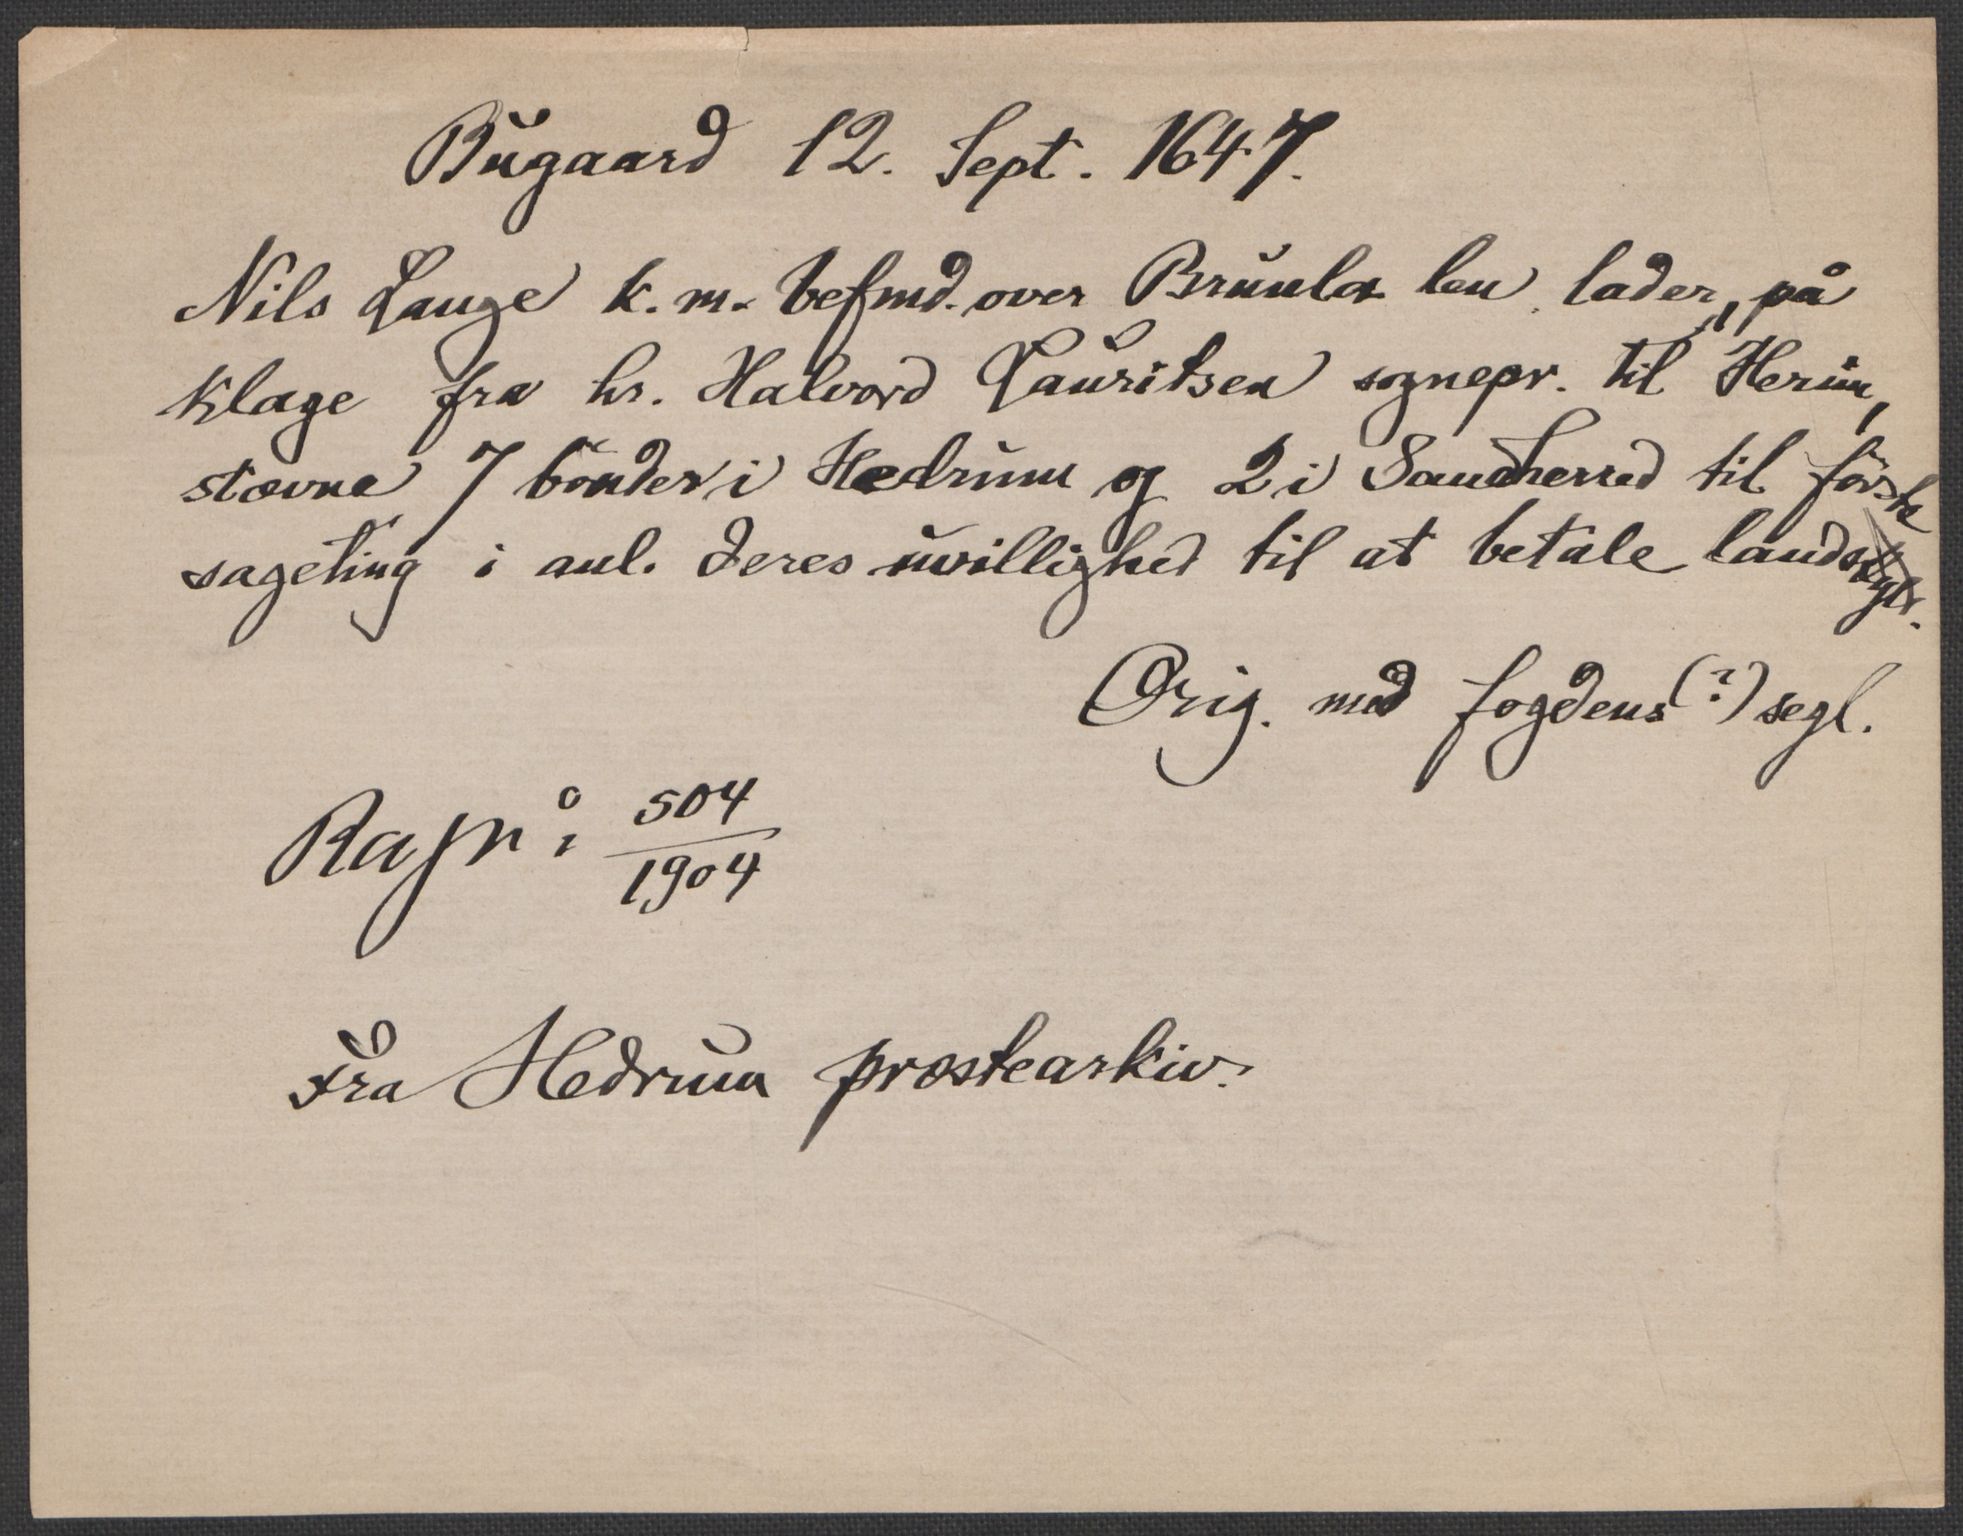 Bugaard 12. Sept. 1647.
Nils Lange k. m. befmd. over Brunla len lader, på
klage fra hr. Halvord Lauritsen sognepr. til Herum,
stævne 7 bönder i Hedrum og 2 i Sandherred til förste
sageting i anl. deres uvillighed til at betale landskyld.
Orig. med fogdens (?) segl.
Ra jnr
504
1904
Fra Hedrum prestearkiv.